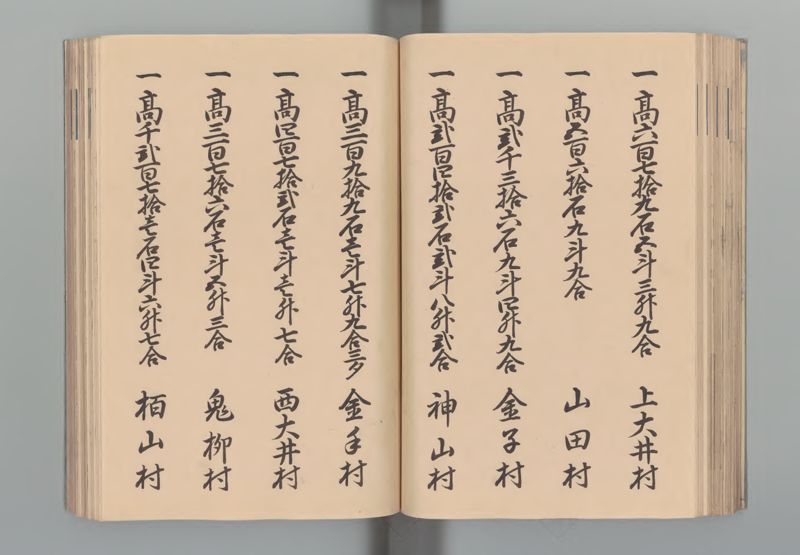 一高六百七拾九石五斗三升九合 上大井村
一高五百六拾石九斗九合 山田村
一高弐千三拾六石九斗四升九合 金子村
一高弐百四拾弐石弐斗八升弐合 神山村
一高三百九拾九石壱斗七升九合三夕 金手村
一高四百七拾弐石壱斗壱升七合 西大井村
一高三百七拾六石壱斗五升三合 鬼柳村
一高千弐百七拾壱石四斗六升七合 栢山村